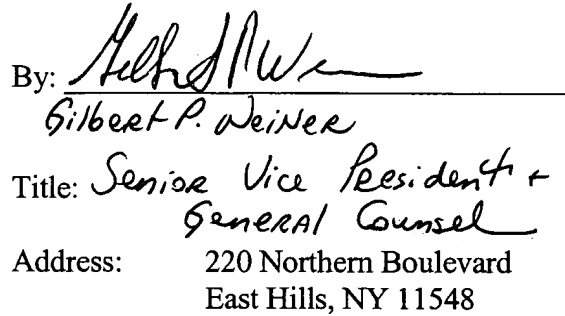 By:
Gilbert P. Weiner
Title: Senior Vice President +
General Counsel
Address: 220 Northern Boulevard
East Hills, NY 11548